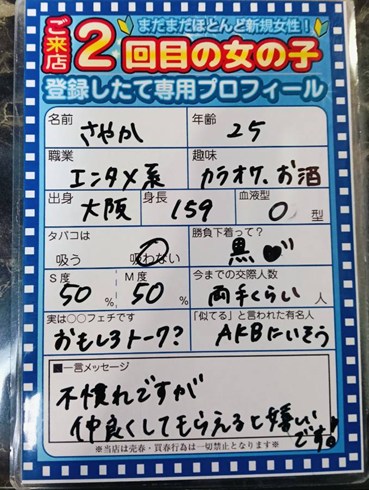 まだまだほとんど新規女性！
ご来店2回目の女の子
登録したて専用プロフィール
名前 さやか 年齢 25
職業 エンタメ系 趣味 カラオケ、お酒
出身 大阪 身長 159 血液型 O 型
タバコは 吸う 吸わない 勝負下着って？ 黒♥♡
S度 50 % M度 50 % 今までの交際人数 両手くらい 人
実は○○フェチです おもしろトーク? 「似てる」と言われた有名人 AKBにいそう
■一言メッセージ
不慣れですが
仲良くしてもらえると嬉しい
です!
※当店は売春・買春行為は一切禁止となります※